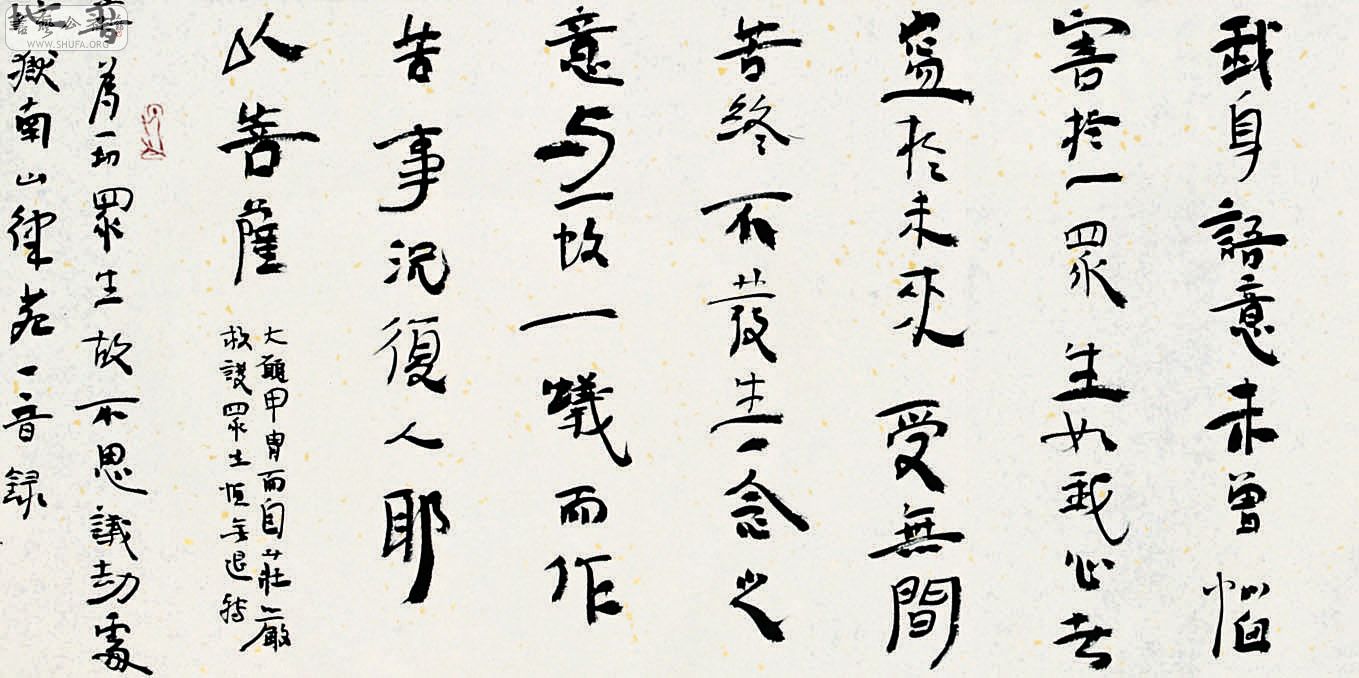 我身語意未曾惱
害於一眾生如我心者
盡於未來受無間
苦終不發生一念之
意與一蚊一蟻而作
苦事況復人耶
以菩薩
大願甲冑而自莊嚴
救護眾生恒無退轉
普為一切眾生故不思議劫處
地獄南山律苑一音錄
WWW.SHUFA.ORG